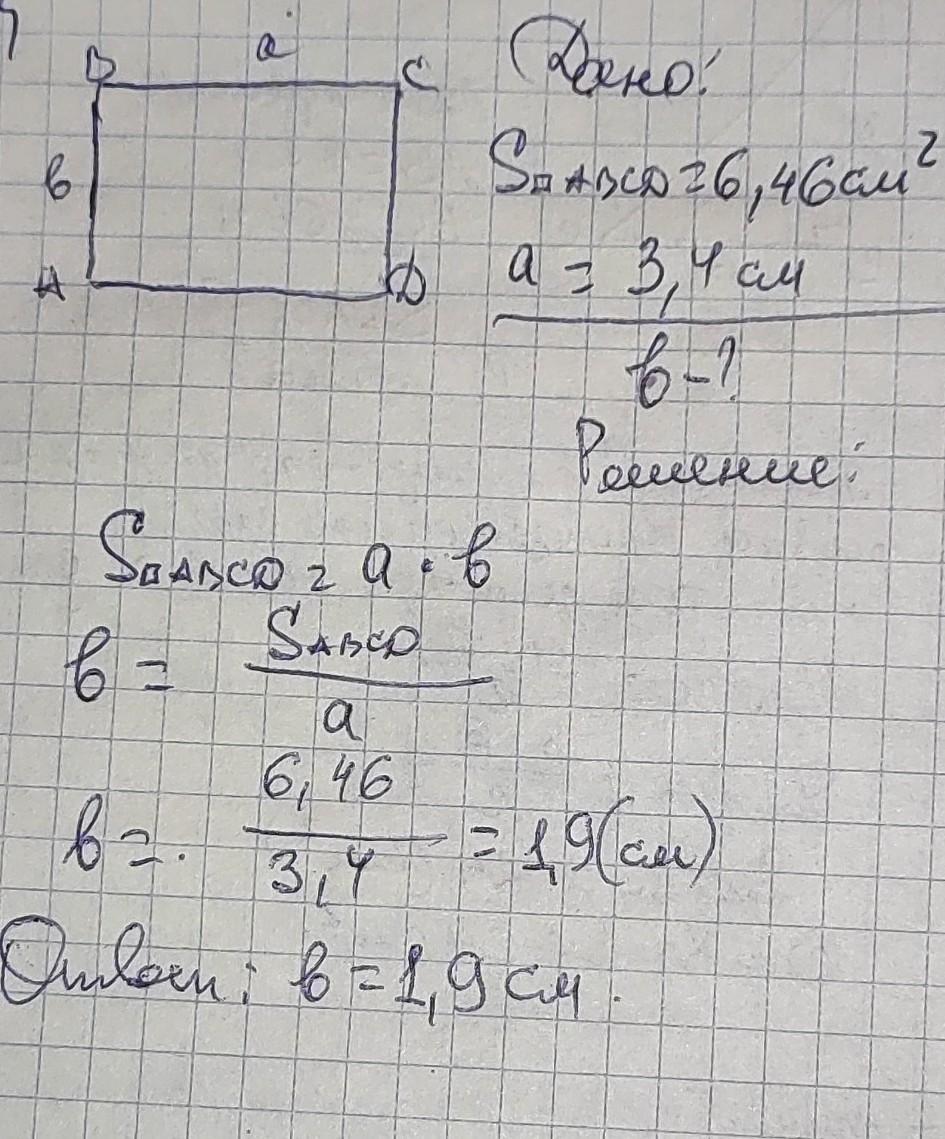 a
B C
Дано:
b
S□ABCD = 6,46 см²
A D
a = 3,4 см
b - ?
Решение:
S□ABCD = a · b
b = SABCD / a
b = 6,46 / 3,4 = 1,9 (см)
Ответ: b = 1,9 см.